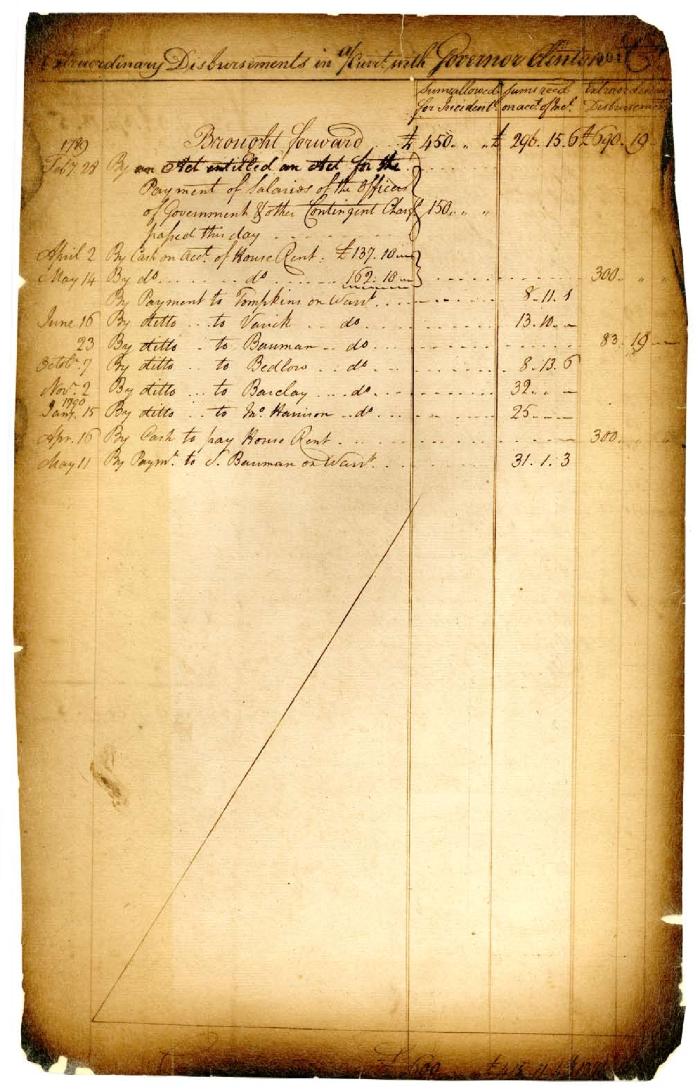 Extraordinary Disbursements in a/Curt. with Governor Clinton
Sums allowed for Incident. Sums recd on acct. of Inct. Extraordinary Disbursements
1789 Brought forward £ 450. " " £ 296. 15. 6 £ 690. 19
Feby. 28 By an Act intitled an Act for the
Payment of Salaries of the Officers
of Government & other Contingent Charg 150. " "
passed this day
April 2 By Cash on Acct. of House Rent. £ 137. 10
May 14 By do. do. 162. 18 300.
By Payment to Tompkins on Warrt. 8. 11. 1
June 16 By ditto to Varick do. 13. 10.
23 By ditto to Bauman do. 83. 19
Octobr. 7 By ditto to Bedlow do. 8. 13. 6
Novr. 2 By ditto to Barclay do. 32.
1790
Jany. 15 By ditto to Mc Harrison do. 25
Apr. 16 By Cash to pay House Rent 300.
May 11 By Paymt. to S. Bauman on Warrt. 31. 1. 3
£ 600